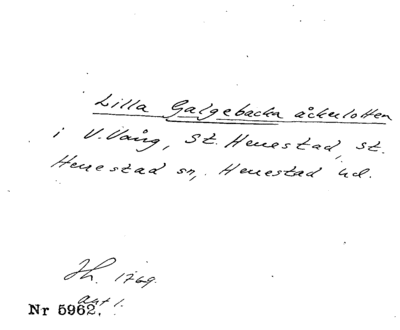 Lilla Galgebacka åckerlotten
i V. Vång, St. Herrestad, St.
Herrestad sn, Herrestad hd.
Jh. 1769.
akt 1.
Nr 5962.